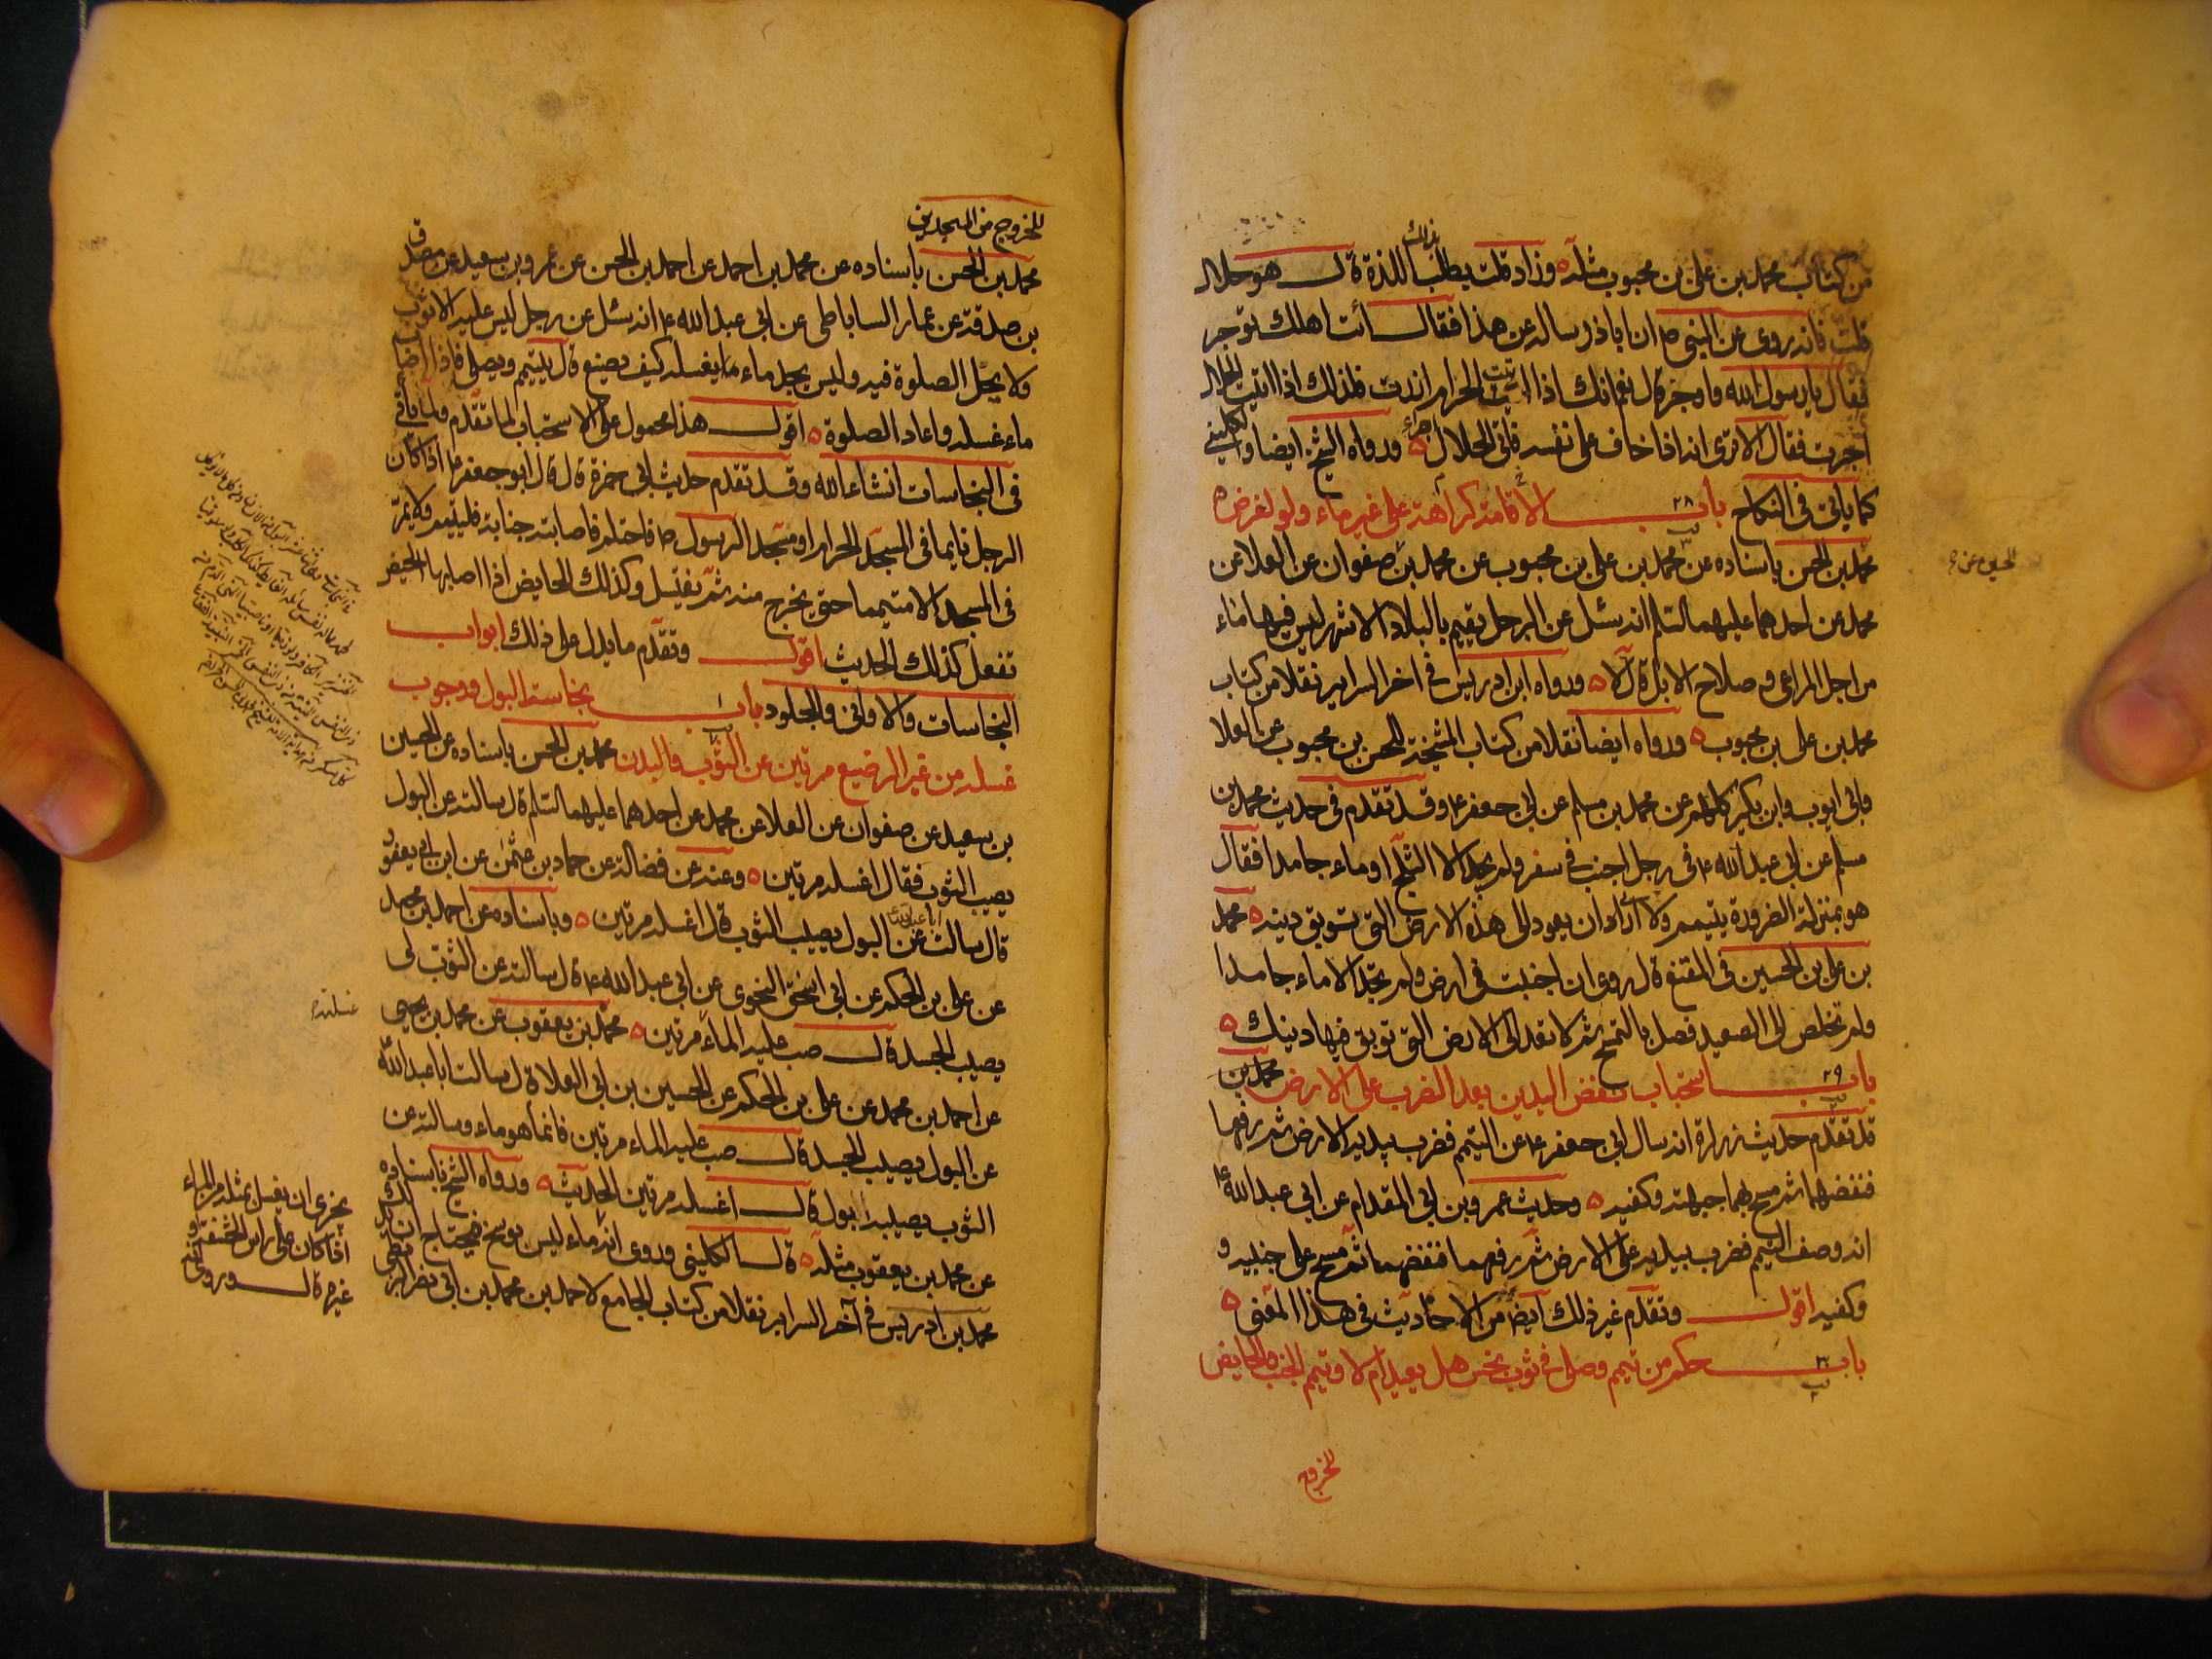 من كتاب محمد بن علي بن محبوب مثله وزاد قلت يطلب بذلك اللذة قال هو حلال
قلت فانه روى عن النبي ص ان اباذر ساله عن هذا فقال ائت اهلك توجر
فقال يا رسول الله واوجر قال نعم انك اذا اتيت الحرام ازرت فلذلك اذا اتيت الحلال
اجرت فقال الا ترى انه اذا خاف على نفسه فاتى الحلال اجر ورواه الشيخ ايضا والكليني
كما ياتي في النكاح ٢٨ باب الاقامة كراهة على غير ماء ولو لغرض
محمد بن الحسن باسناده عن محمد بن علي بن محبوب عن محمد بن صفوان عن العلا عن
محمد عن احدهما عليهما السلم انه سئل عن الرجل يقيم بالبلاد الاشهر ليس فيها ماء
من اجل المراعى وصلاح الابل قال لا ورواه ابن ادريس في اخر السراير نقلا من كتاب
محمد بن علي بن محبوب ورواه ايضا نقلا من كتاب المشيخة للحسن بن محبوب عن العلا
وابي ايوب وابن بكير كلهم عن محمد بن مسلم عن ابي جعفر ع وقد تقدم في حديث محمد بن
مسلم عن ابي عبد الله ع في رجل اجنب في سفر ولم يجد الا الثلج او ماء جامدا فقال
هو بمنزلة الضرورة يتيمم ولا ارى ان يعود الى هذه الارض التي توبق دينه محمد
بن علي بن الحسين في المقنع قال روى ان اجنبت في ارض ولم تجد الا ماء جامدا
ولم تخلص الى الصعيد فصل بالتمسح ثم لا تعد الى الارض التي توبق فيها دينك
٢٩ باب استحباب نفض اليدين بعد الضرب على الارض محمد بن
قد تقدم حديث زرارة انه سال ابي جعفر ع عن التيمم فضرب بيديه الارض ثم رفعها
فنفضها ثم مسح بهما جبهته وكفيه وحديث عمرو بن ابي المقدام عن ابي عبد الله ع
انه وصف التيمم فضرب بيديه على الارض ثم رفعهما فنفضهما ثم مسح على جنبيه و
وكفيه اقول وتقدم غير ذلك ايضا من الاحاديث في هذا المعنى
٣٠ باب حكم من تيمم وصلى في ثوب نجس هل يعيد ام لا وتيمم الجنب والحايض
للخروج
للخروج من المسجدين
محمد بن الحسن باسناده عن محمد بن احمد عن احمد بن الحسن عن عمرو بن سعيد عن مصدق
بن صدقة عن عمار الساباطي عن ابي عبد الله ع انه سئل عن رجل ليس عليه الا ثوب
ولا يحل الصلوة فيه وليس يجد ماء يغسله كيف يصنع قال يتيمم ويصلي فاذا اصاب
ماء غسله واعاد الصلوة اقول هذا محمول على الاستحباب لما تقدم ولما ياتي
في النجاسات انشاء الله وقد تقدم حديث ابي حمزة قال قال ابو جعفر ع اذا كان
الرجل نايما في المسجد الحرام او مسجد الرسول ص فاحتلم فاصابته جنابة فليتيمم ولا يمر
في المسجد الا متيمما حتى يخرج منه ثم يغتسل وكذلك الحايض اذا اصابها الحيض
تفعل كذلك الحديث اقول وتقدم ما يدل على ذلك ابواب
النجاسات والاواني والجلود باب نجاسة البول ووجوب
غسله من غير الرضيع مرتين عن الثوب والبدن محمد بن الحسن باسناده عن الحسين
بن سعيد عن صفوان عن العلا عن محمد عن احدهما عليهما السلم قال سالته عن البول
يصيب الثوب فقال اغسله مرتين وعنه عن فضالة عن حماد بن عثمن عن ابن ابي يعفور
قال سالت ابا عبد الله ع عن البول يصيب الثوب قال اغسله مرتين وباسناده عن احمد بن محمد
عن علي بن الحكم عن ابي اسحق النحوى عن ابي عبد الله ع قال سالته عن الثوب
يصيب الجسد قال صب عليه الماء مرتين محمد بن يعقوب عن محمد بن يحيى
عن احمد بن محمد عن علي بن الحكم عن الحسين بن ابي العلا قال سالت ابا عبد الله
عن البول يصيب الجسد قال صب عليه الماء مرتين فانما هو ماء وسالته عن
الثوب يصيبه البول قال اغسله مرتين الحديث ورواه الشيخ باسناده
عن محمد بن يعقوب مثله قال الكليني وروى انه ماء ليس بوسخ فيحتاج ان يدلك
محمد بن ادريس في آخر السراير نقلا من كتاب الجامع لاحمد بن محمد بن ابي نصر البزنطي
يجزى ان يغسل بمثله من الماء
اذا كان على راس الحشفة و
غيره قال وروى